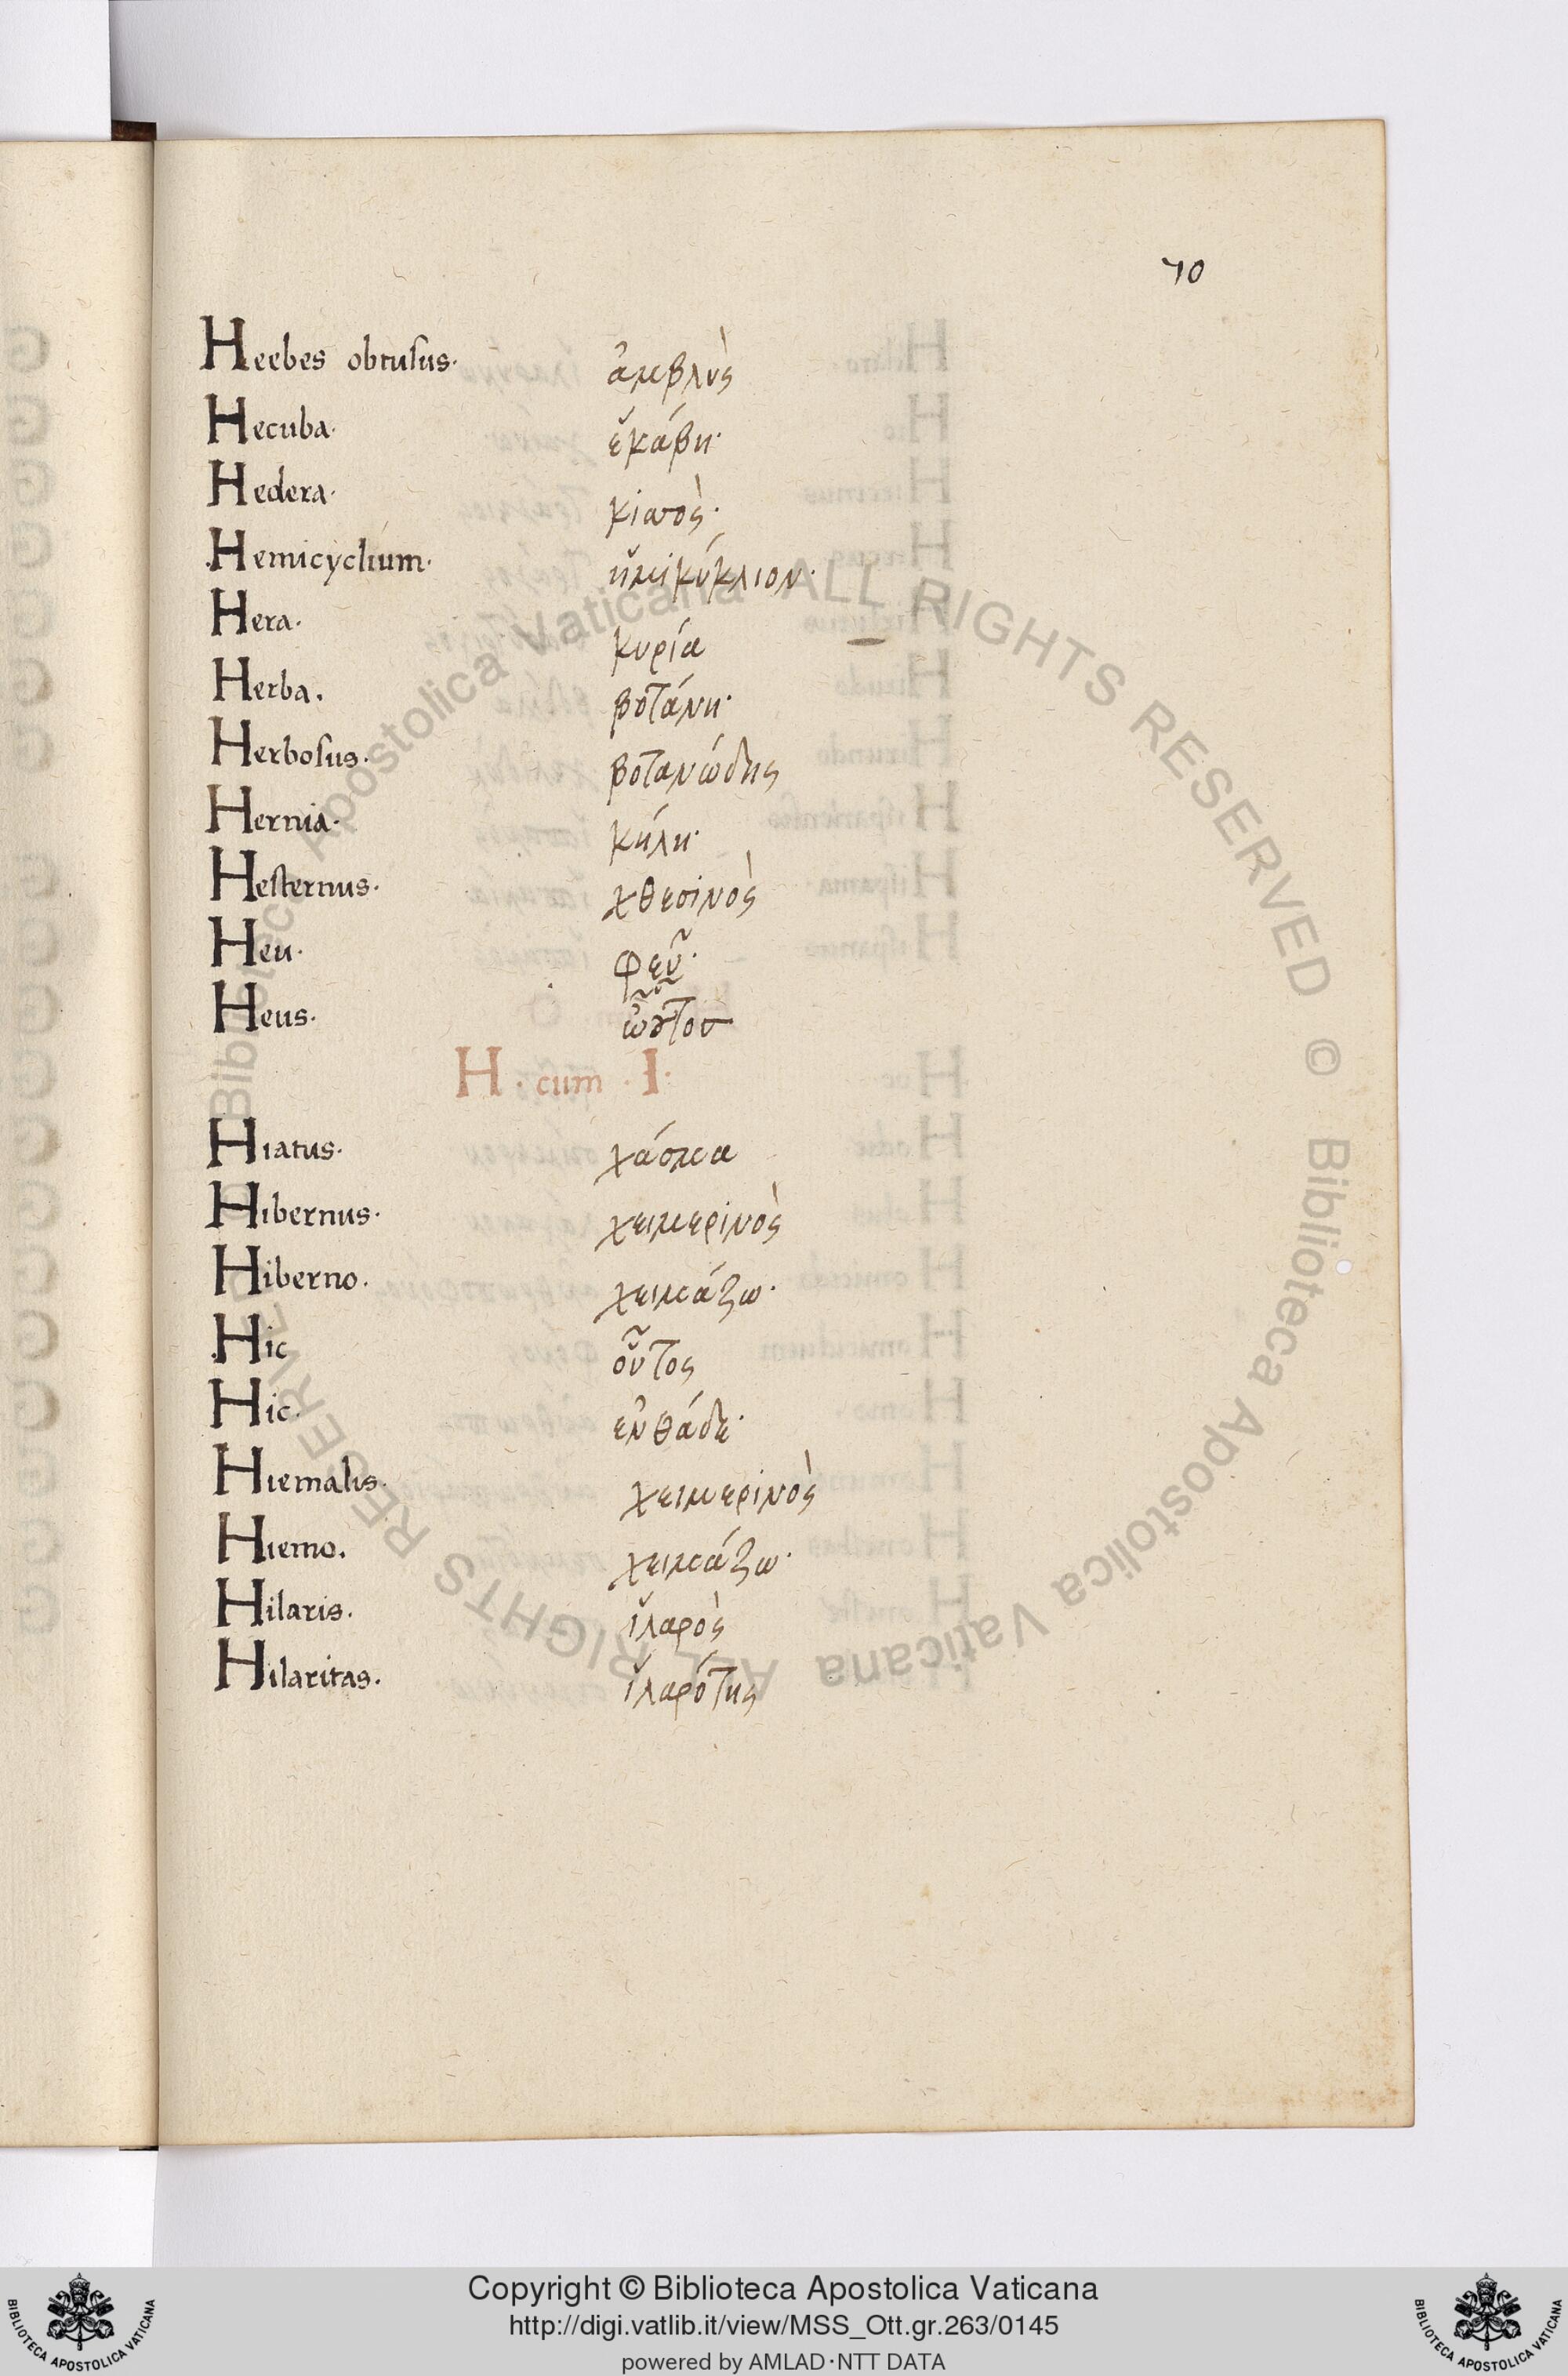 70
Heebes obtusus· ἀμβλὺς
Hecuba· ἑκάβη·
Hedera· κισσὸς·
·Hemicyclium· ἡμικύκλιον·
Hera· κυρία
Herba. βοτάνη·
Herbosus· βοτανώδης
Hernia· κήλη·
Hesternus· χθεσινὸς
Heu· φεῦ·
Heus· ὦ οὗτος
H · cum · I·
Hiatus· χάσμα
Hibernus· χειμερινὸς
Hiberno· χειμάζω·
·Hic οὗτος
Hic· ἐνθάδε·
Hiemalis· χειμερινὸς
Hiemo. χειμάζω·
Hilaris. ἱλαρὸς
Hilaritas. ἱλαρότης
Biblioteca Apostolica Vaticana ALL RIGHTS RESERVED © Biblioteca Apostolica Vaticana ALL RIGHTS RESERVED
Copyright © Biblioteca Apostolica Vaticana
http://digi.vatlib.it/view/MSS_Ott.gr.263/0145
powered by AMLAD·NTT DATA
BIBLIOTECA APOSTOLICA VATICANA
BIBLIOTECA APOSTOLICA VATICANA